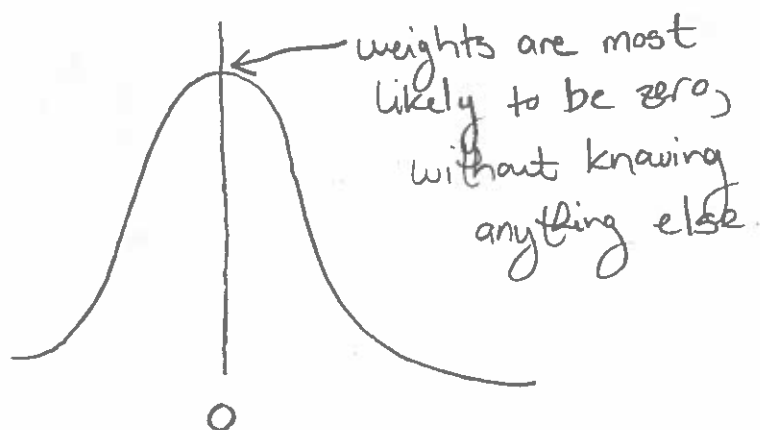 weights are most
likely to be zero,
without knowing
anything else.
0